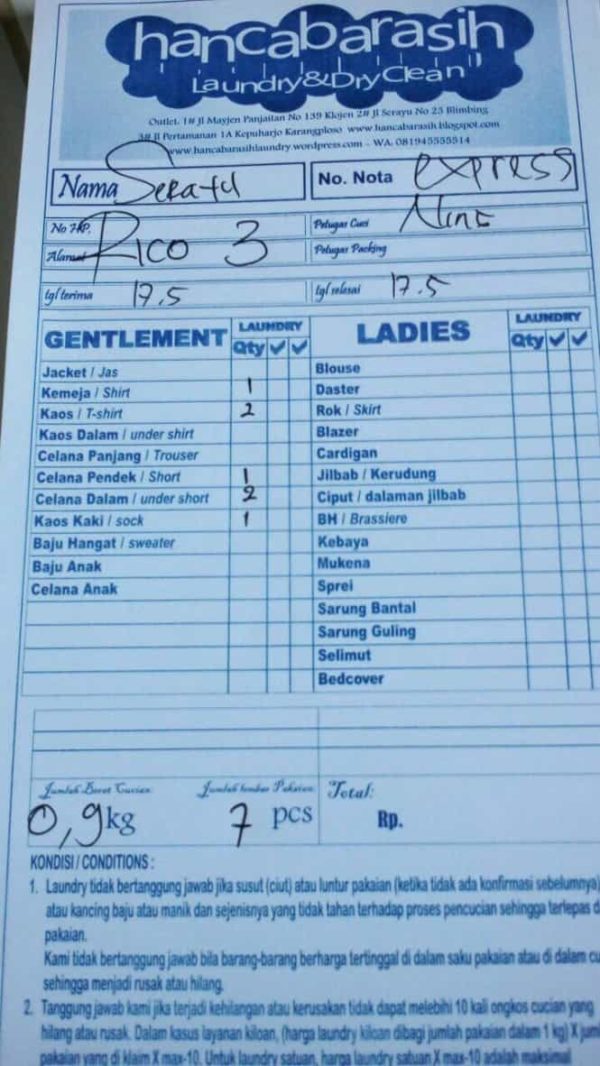 hancabarasih
Laundry&DryClean
Outlet. 1# Jl Mayjen Panjaitan No 139 Klojen 2# Jl Serayu No 25 Blimbing
3# Jl Pertamanan 1A Kepuharjo Karangploso www.hancabarasih.blogspot.com
www.hancabarasihlaundry.wordpress.com - WA: 081945555514
Nama No. Nota express
No HP. Petugas Cuci Nine
Alamat Rico 3 Petugas Packing
tgl terima 17.5 tgl selesai 17.5
GENTLEMENT LAUNDRY LADIES LAUNDRY
Qty Qty
Jacket / Jas Blouse
Kemeja / Shirt 1 Daster
Kaos / T-shirt 2 Rok / Skirt
Kaos Dalam / under shirt Blazer
Celana Panjang / Trouser Cardigan
Celana Pendek / Short 1 Jilbab / Kerudung
Celana Dalam / under short 2 Ciput / dalaman jilbab
Kaos Kaki / sock 1 BH / Brassiere
Baju Hangat / sweater Kebaya
Baju Anak Mukena
Celana Anak Sprei
Sarung Bantal
Sarung Guling
Selimut
Bedcover
Jumlah Berat Cucian Jumlah lembar Pakaian Total:
0,9 kg 7 pcs Rp.
KONDISI / CONDITIONS :
1. Laundry tidak bertanggung jawab jika susut (ciut) atau luntur pakaian (ketika tidak ada konfirmasi sebelumnya)
atau kancing baju atau manik dan sejenisnya yang tidak tahan terhadap proses pencucian sehingga terlepas d
pakaian.
Kami tidak bertanggung jawab bila barang-barang berharga tertinggal di dalam saku pakaian atau di dalam cu
sehingga menjadi rusak atau hilang.
2. Tanggung jawab kami jika terjadi kehilangan atau kerusakan tidak dapat melebihi 10 kali ongkos cucian yang
hilang atau rusak. Dalam kasus layanan kiloan, (harga laundry kiloan dibagi jumlah pakaian dalam 1 kg) X juml
pakaian yang di klaim X max-10. Untuk laundry satuan, harga laundry satuan X max-10 adalah maksimal